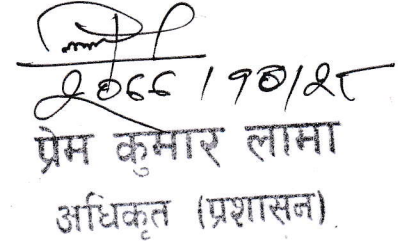 २०६६ / १०/२८
प्रेम कुमार लामा
अधिकृत (प्रशासन)